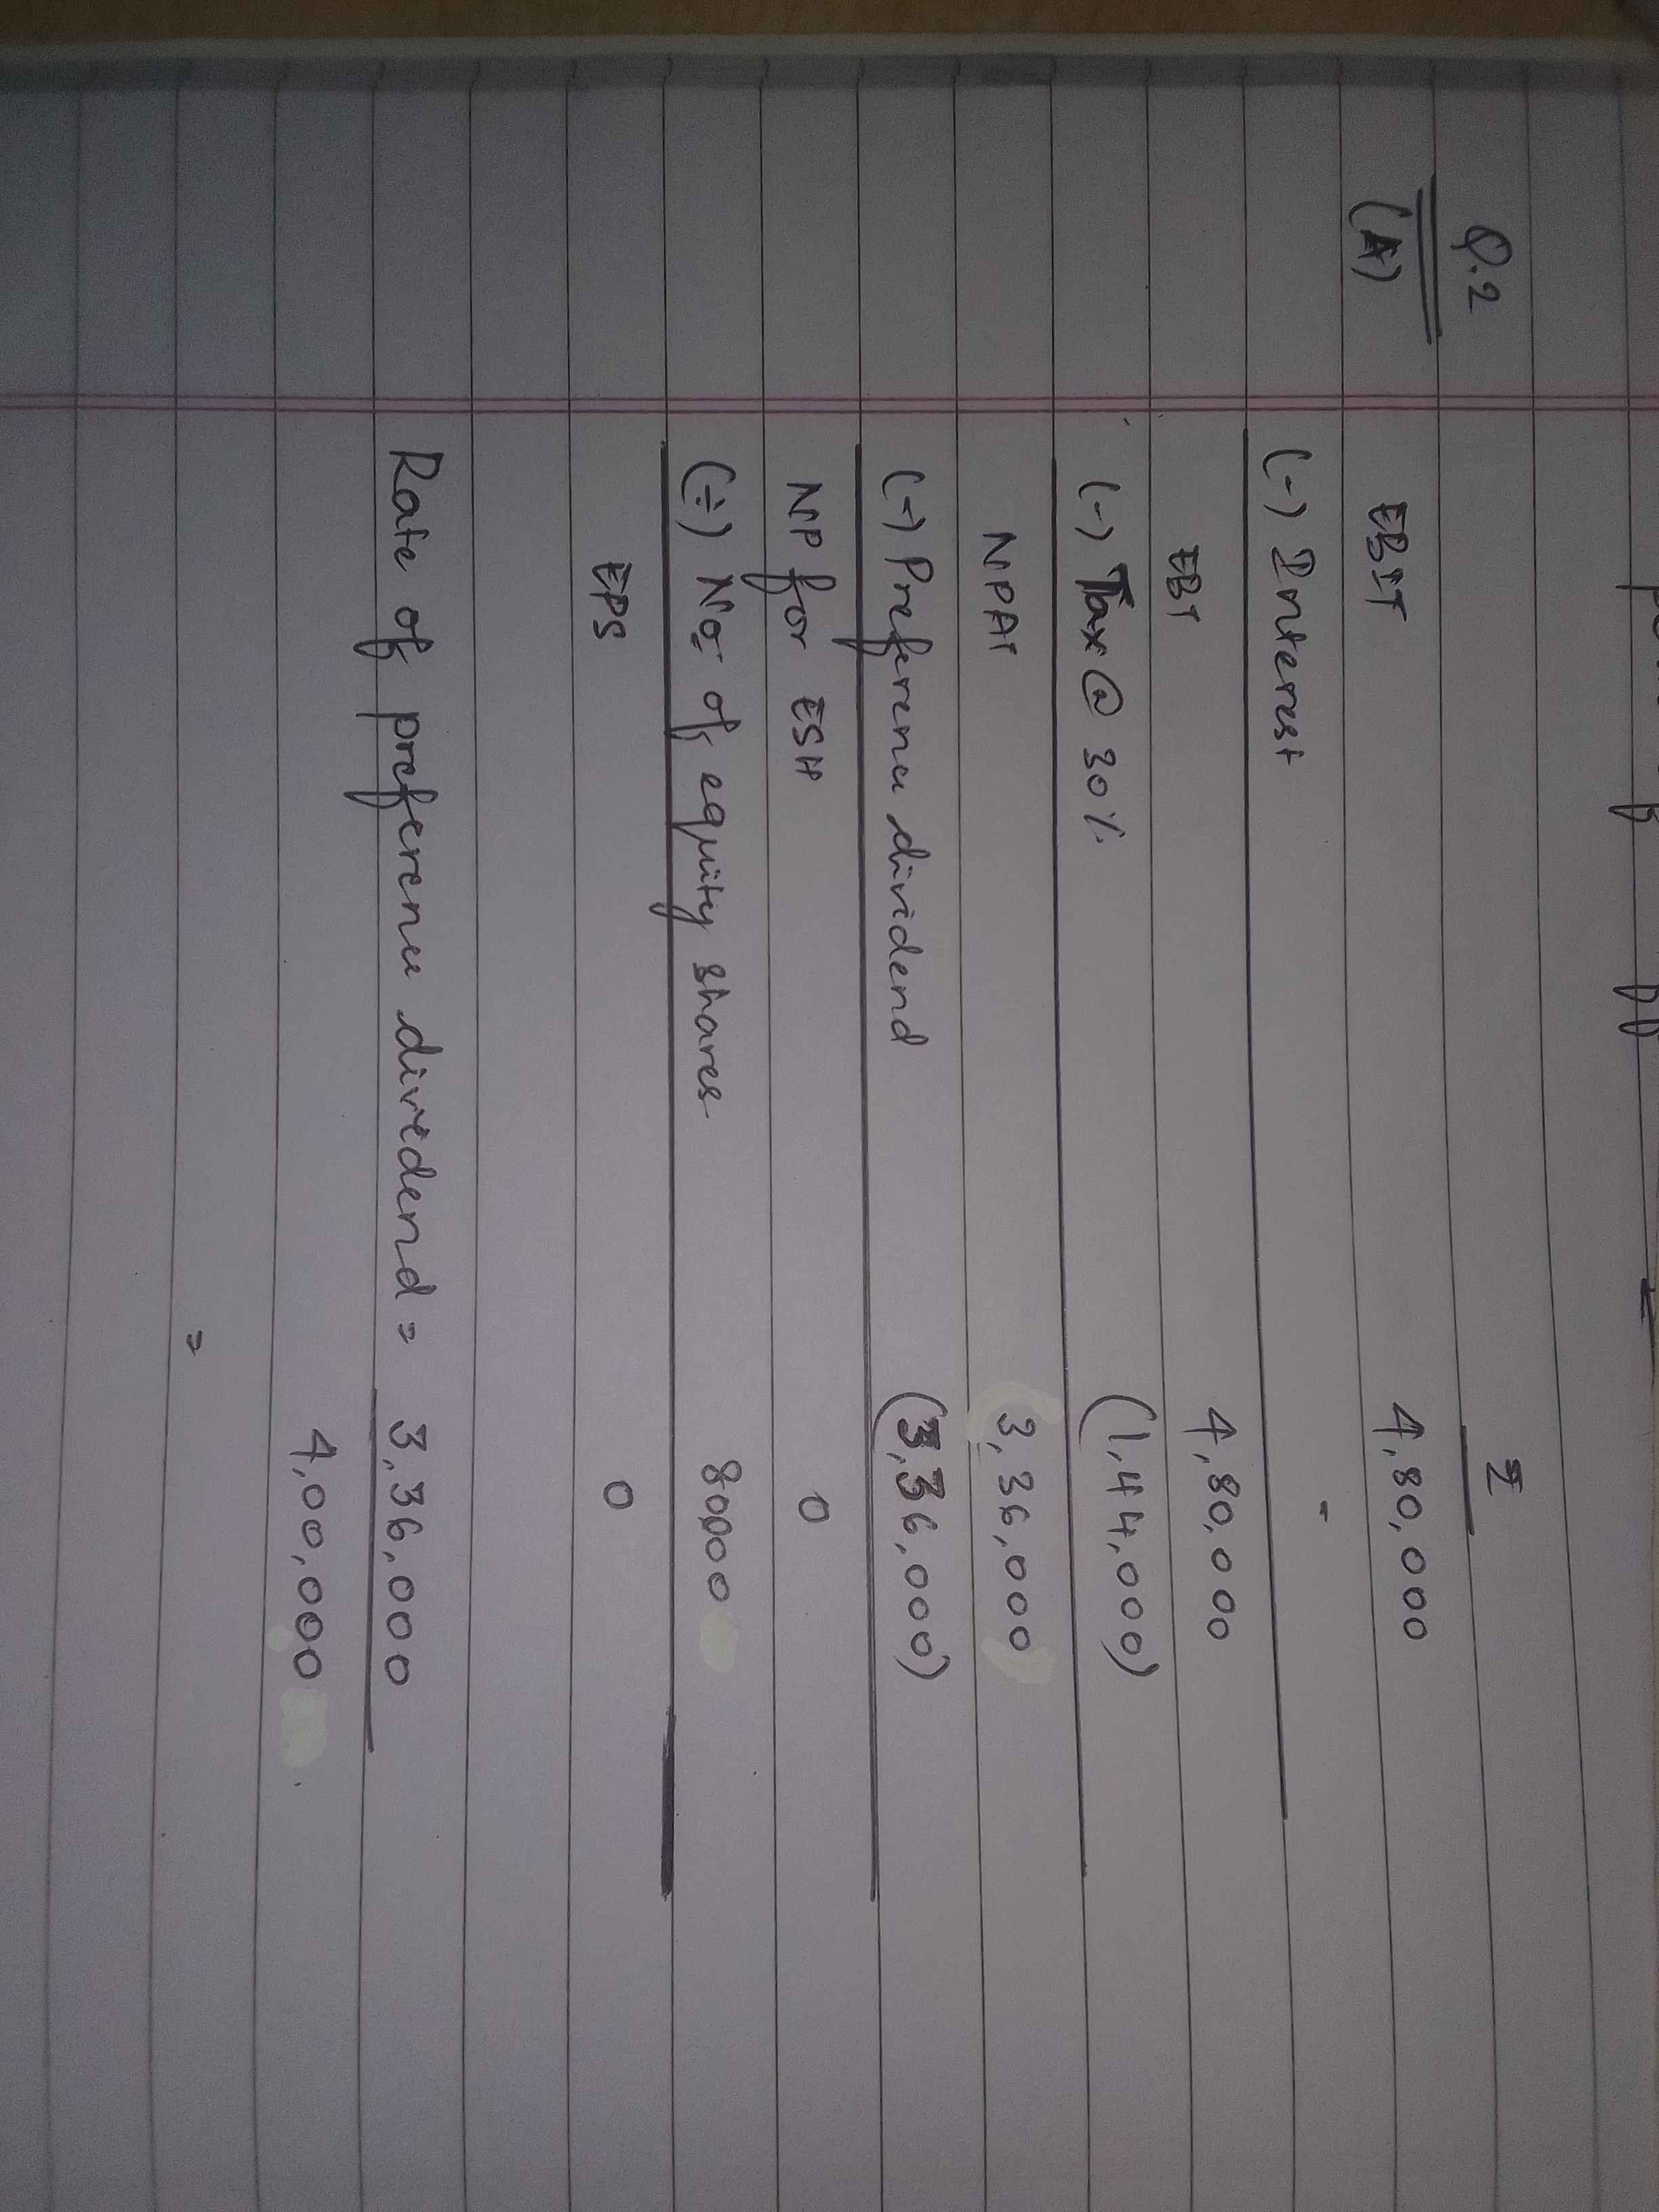 Q.2
(A)
I
EBIT 4,80,000
(-) Interest -
EBT 4,80,000
(-) Tax @ 30% (1,44,000)
NPAT 3,36,000
(-) Preference dividend (3,36,000)
NP for ESH 0
(÷) No. of equity shares 80000
EPS 0
Rate of preference dividend = 3,36,000
4,00,000
=